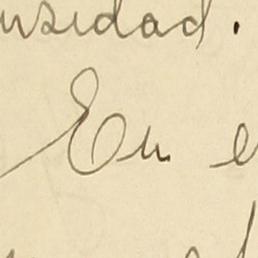 usidad.
En e